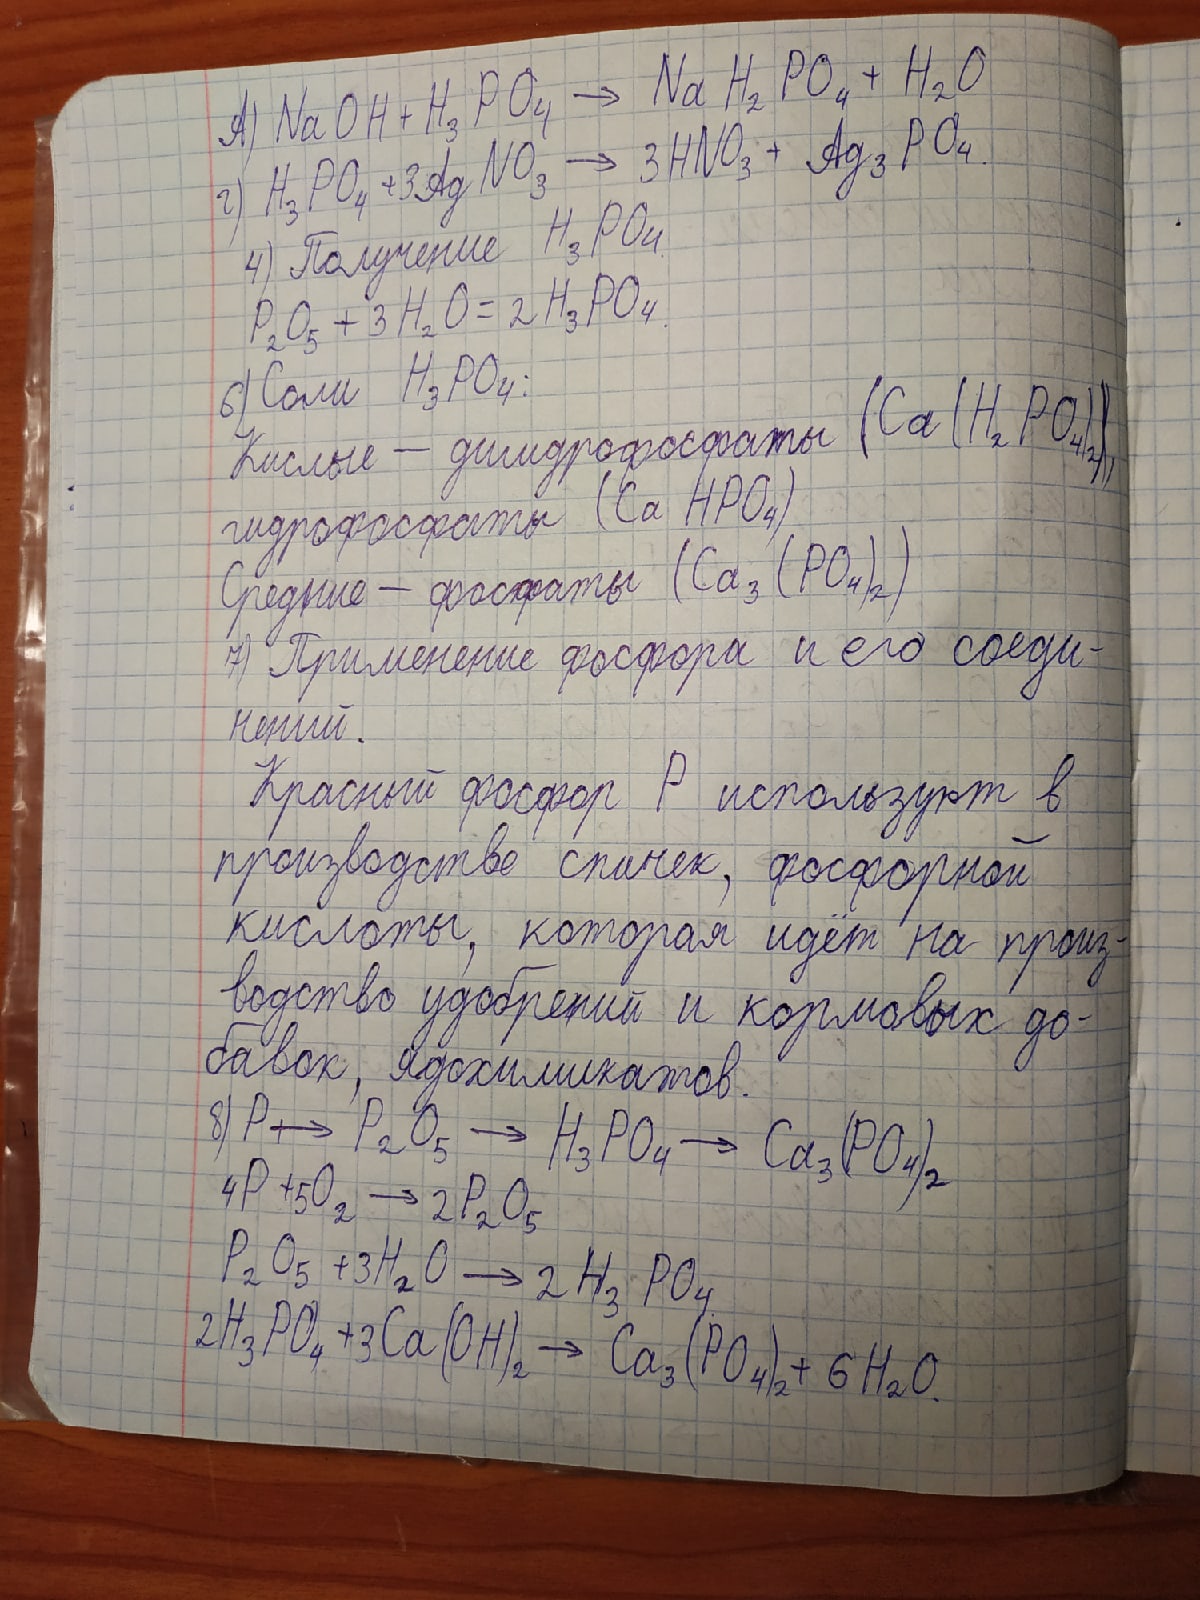 А) NaOH + H₃PO₄ → NaH₂PO₄ + H₂O
г) H₃PO₄ + 3AgNO₃ → 3HNO₃ + Ag₃PO₄.
4) Получение H₃PO₄.
P₂O₅ + 3H₂O = 2H₃PO₄.
6) Соли H₃PO₄:
Кислые — дигидрофосфаты (Ca(H₂PO₄)₂),
гидрофосфаты (CaHPO₄)
Средние — фосфаты (Ca₃(PO₄)₂)
7) Применение фосфора и его соеди-
нений.
Красный фосфор P используют в
производстве спичек, фосфорной
кислоты, которая идёт на произ-
водство удобрений и кормовых до-
бавок, ядохимикатов.
8) P → P₂O₅ → H₃PO₄ → Ca₃(PO₄)₂
4P + 5O₂ → 2P₂O₅
P₂O₅ + 3H₂O → 2H₃PO₄.
2H₃PO₄ + 3Ca(OH)₂ → Ca₃(PO₄)₂ + 6H₂O.